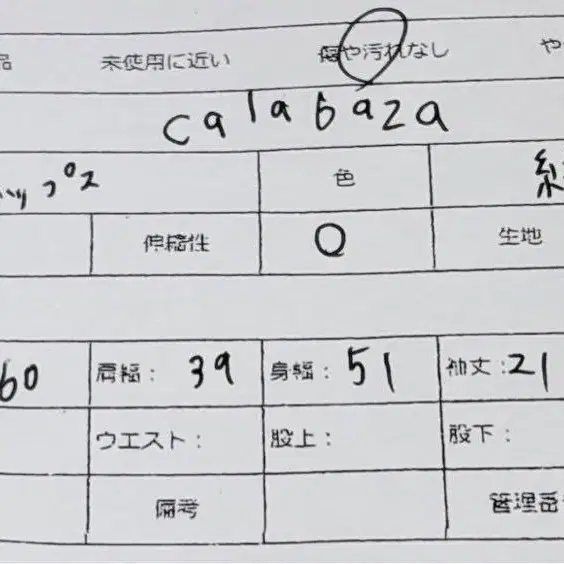 品 未使用に近い 傷や汚れなし や
calabaza
ップス 色
伸縮性 ○ 生地
60 肩幅: 39 身幅: 51 袖丈:21
ウエスト: 股上: 股下:
備考 管理番